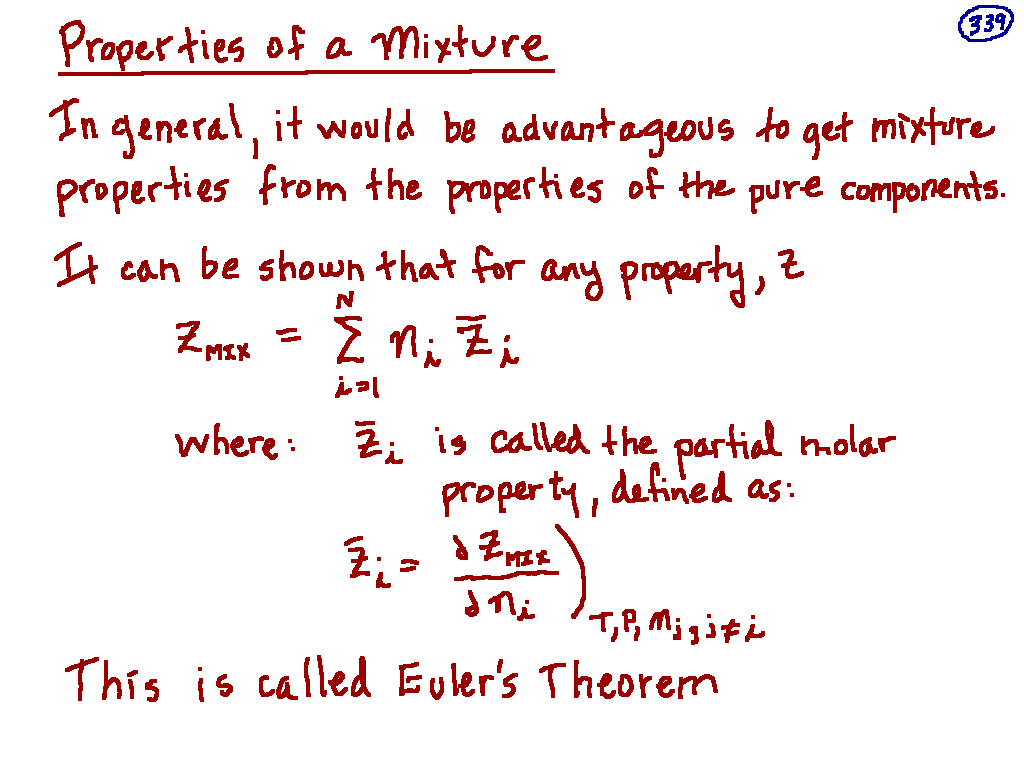 339
Properties of a Mixture
In general, it would be advantageous to get mixture
properties from the properties of the pure components.
It can be shown that for any property, Z
Z_MIX = Σ_{i=1}^{N} n_i Z̄_i
where: Z̄_i is called the partial molar
property, defined as:
Z̄_i = ∂Z_MIX / ∂n_i )_{T, P, n_j, j≠i}
This is called Euler's Theorem